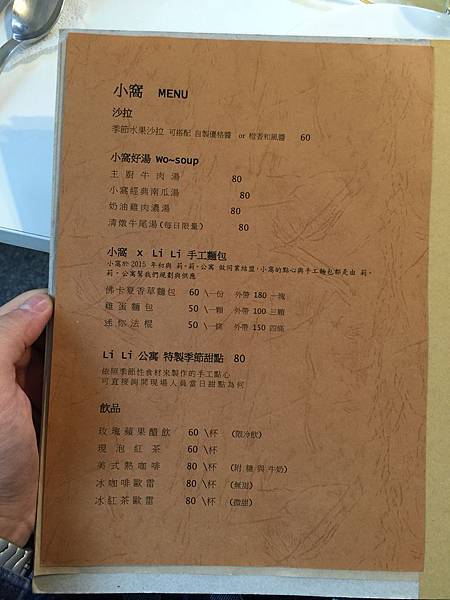 小窩 MENU
沙拉
季節水果沙拉 可搭配 自製優格醬 or 橙香和風醬 60
小窩好湯 wo~soup
主廚牛肉湯 80
小窩經典南瓜湯 80
奶油雞肉濃湯 80
清燉牛尾湯(每日限量) 80
小窩 x Li Li 手工麵包
小窩於 2015 年初與 莉.莉.公寓 做同業結盟,小窩的點心與手工麵包都是由 莉.
莉.公寓幫我們規劃與供應
佛卡夏香草麵包 60 \一份 外帶 180 一塊
雞蛋麵包 50 \一顆 外帶 100 三顆
迷你法棍 50 \一條 外帶 150 四條
Li Li 公寓 特製季節甜點 80
依照季節性食材來製作的手工點心
可直接詢問現場人員當日甜點為何
飲品
玫瑰蘋果醋飲 60 \杯 (限冷飲)
現泡紅茶 60 \杯
美式熱咖啡 80 \杯 (附 糖 與 牛奶)
冰咖啡歐雷 80 \杯 (無甜)
冰紅茶歐雷 80 \杯 (微甜)